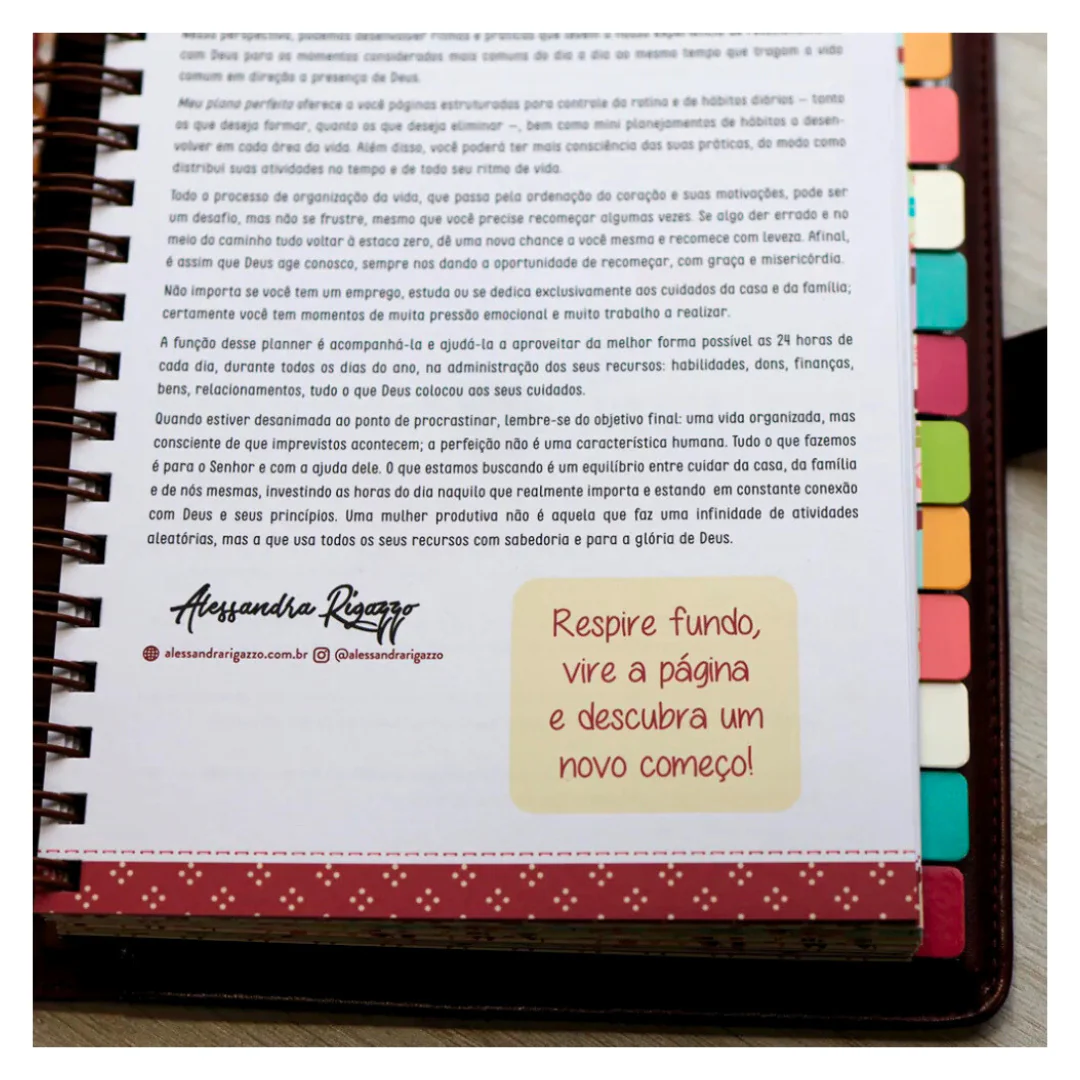 Nossa perspectiva, podemos desenvolver rotinas e práticas que levem a nossa
com Deus para os momentos considerados mais comuns do dia a dia ao mesmo tempo que tragam a vida
comum em direção a presença de Deus.
Meu plano perfeito oferece a você páginas estruturadas para controle da rotina e de hábitos diários – tanto
os que deseja formar, quanto os que deseja eliminar –, bem como mini planejamentos de hábitos a desen-
volver em cada área da vida. Além disso, você poderá ter mais consciência das suas práticas, do modo como
distribui suas atividades no tempo e de todo seu ritmo de vida.
Todo o processo de organização da vida, que passa pela ordenação do coração e suas motivações, pode ser
um desafio, mas não se frustre, mesmo que você precise recomeçar algumas vezes. Se algo der errado e no
meio do caminho tudo voltar à estaca zero, dê uma nova chance a você mesma e recomece com leveza. Afinal,
é assim que Deus age conosco, sempre nos dando a oportunidade de recomeçar, com graça e misericórdia.
Não importa se você tem um emprego, estuda ou se dedica exclusivamente aos cuidados da casa e da família;
certamente você tem momentos de muita pressão emocional e muito trabalho a realizar.
A função desse planner é acompanhá-la e ajudá-la a aproveitar da melhor forma possível as 24 horas de
cada dia, durante todos os dias do ano, na administração dos seus recursos: habilidades, dons, finanças,
bens, relacionamentos, tudo o que Deus colocou aos seus cuidados.
Quando estiver desanimada ao ponto de procrastinar, lembre-se do objetivo final: uma vida organizada, mas
consciente de que imprevistos acontecem; a perfeição não é uma característica humana. Tudo o que fazemos
é para o Senhor e com a ajuda dele. O que estamos buscando é um equilíbrio entre cuidar da casa, da família
e de nós mesmas, investindo as horas do dia naquilo que realmente importa e estando em constante conexão
com Deus e seus princípios. Uma mulher produtiva não é aquela que faz uma infinidade de atividades
aleatórias, mas a que usa todos os seus recursos com sabedoria e para a glória de Deus.
Alessandra Rigazzo
alessandrarigazzo.com.br @alessandrarigazzo
Respire fundo,
vire a página
e descubra um
novo começo!